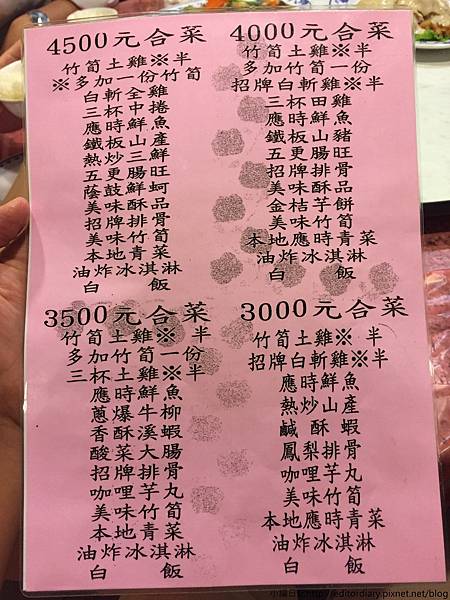 4500元合菜
竹筍土雞※半
※多加一份竹筍
白斬全雞
三杯中捲
應時鮮魚
鐵板山產
熱炒三鮮
五更腸旺
蔭鼓鮮蚵
美味酥品
招牌排骨
美味竹筍
本地青菜
油炸冰淇淋
白飯
4000元合菜
竹筍土雞※半
多加竹筍一份
招牌白斬雞※半
三杯田雞
應時鮮魚
鐵板山豬
五更腸旺
招牌排骨
美味酥品
金桔芋餅
美味竹筍
本地應時青菜
油炸冰淇淋
白飯
3500元合菜
竹筍土雞※半
多加竹筍一份
三杯土雞※半
應時鮮魚
蔥爆牛柳
香酥溪蝦
酸菜大腸
招牌排骨
咖哩芋丸
美味竹筍
本地青菜
油炸冰淇淋
白飯
3000元合菜
竹筍土雞※半
招牌白斬雞※半
應時鮮魚
熱炒山產
鹹酥蝦
鳳梨排骨
咖哩芋丸
美味竹筍
本地應時青菜
油炸冰淇淋
白飯